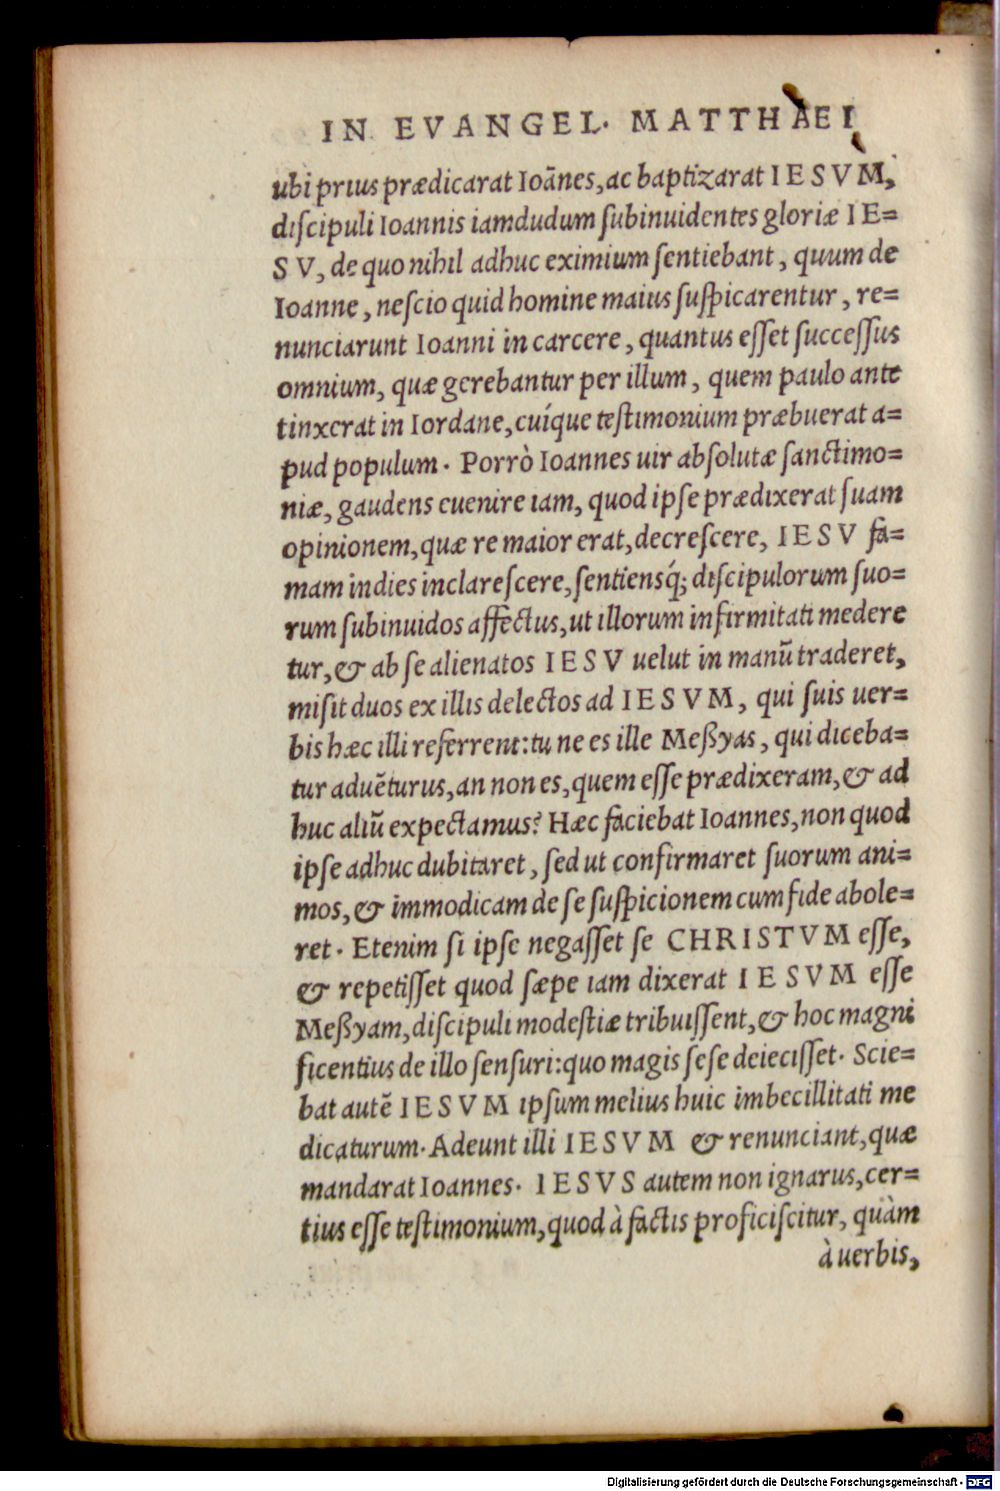 IN EVANGEL. MATTHAEI
ubi prius prædicarat Ioãnes, ac baptizarat IESVM,
discipuli Ioannis iamdudum subinuidentes gloriæ IE=
SV, de quo nihil adhuc eximium sentiebant, quum de
Ioanne, nescio quid homine maius suspicarentur, re=
nunciarunt Ioanni in carcere, quantus esset successus
omnium, quæ gerebantur per illum, quem paulo ante
tinxerat in Iordane, cuíque testimonium præbuerat a=
pud populum. Porrò Ioannes uir absolutæ sanctimo=
niæ, gaudens euenire iam, quod ipse prædixerat suam
opinionem, quæ re maior erat, decrescere, IESV fa=
mam indies inclarescere, sentiensq́; discipulorum suo=
rum subinuidos affectus, ut illorum infirmitati medere
tur, & ab se alienatos IESV uelut in manũ traderet,
misit duos ex illis delectos ad IESVM, qui suis uer=
bis hæc illi referrent: tu ne es ille Meßyas, qui diceba=
tur aduẽturus, an non es, quem esse prædixeram, & ad
huc aliũ expectamus? Hæc faciebat Ioannes, non quod
ipse adhuc dubitaret, sed ut confirmaret suorum ani=
mos, & immodicam de se suspicionem cum fide abole=
ret. Etenim si ipse negasset se CHRISTVM esse,
& repetisset quod sæpe iam dixerat IESVM esse
Meßyam, discipuli modestiæ tribuissent, & hoc magni
ficentius de illo sensuri: quo magis sese deiecisset. Scie=
bat autẽ IESVM ipsum melius huic imbecillitati me
dicaturum. Adeunt illi IESVM & renunciant, quæ
mandarat Ioannes. IESVS autem non ignarus, cer=
tius esse testimonium, quod à factis proficiscitur, quàm
à uerbis,
Digitalisierung gefördert durch die Deutsche Forschungsgemeinschaft - DFG